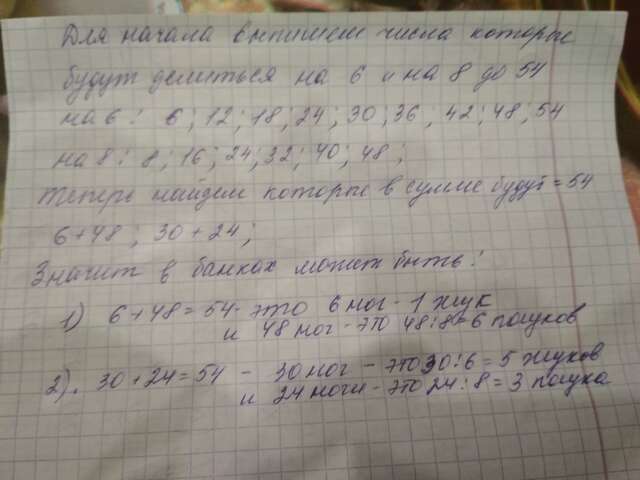 Для начала выпишем числа которые
будут делиться на 6 и на 8 до 54
на 6: 6; 12; 18; 24; 30; 36; 42; 48; 54
на 8: 8; 16; 24; 32; 40; 48;
теперь найдем которые в сумме будут = 54
6+48; 30+24;
Значит в банках может быть:
1) 6+48=54 - это 6 ног - 1 жук
и 48 ног - это 48:8=6 пауков
2). 30+24=54 - 30 ног - это 30:6=5 жуков
и 24 ноги - это 24:8=3 паука